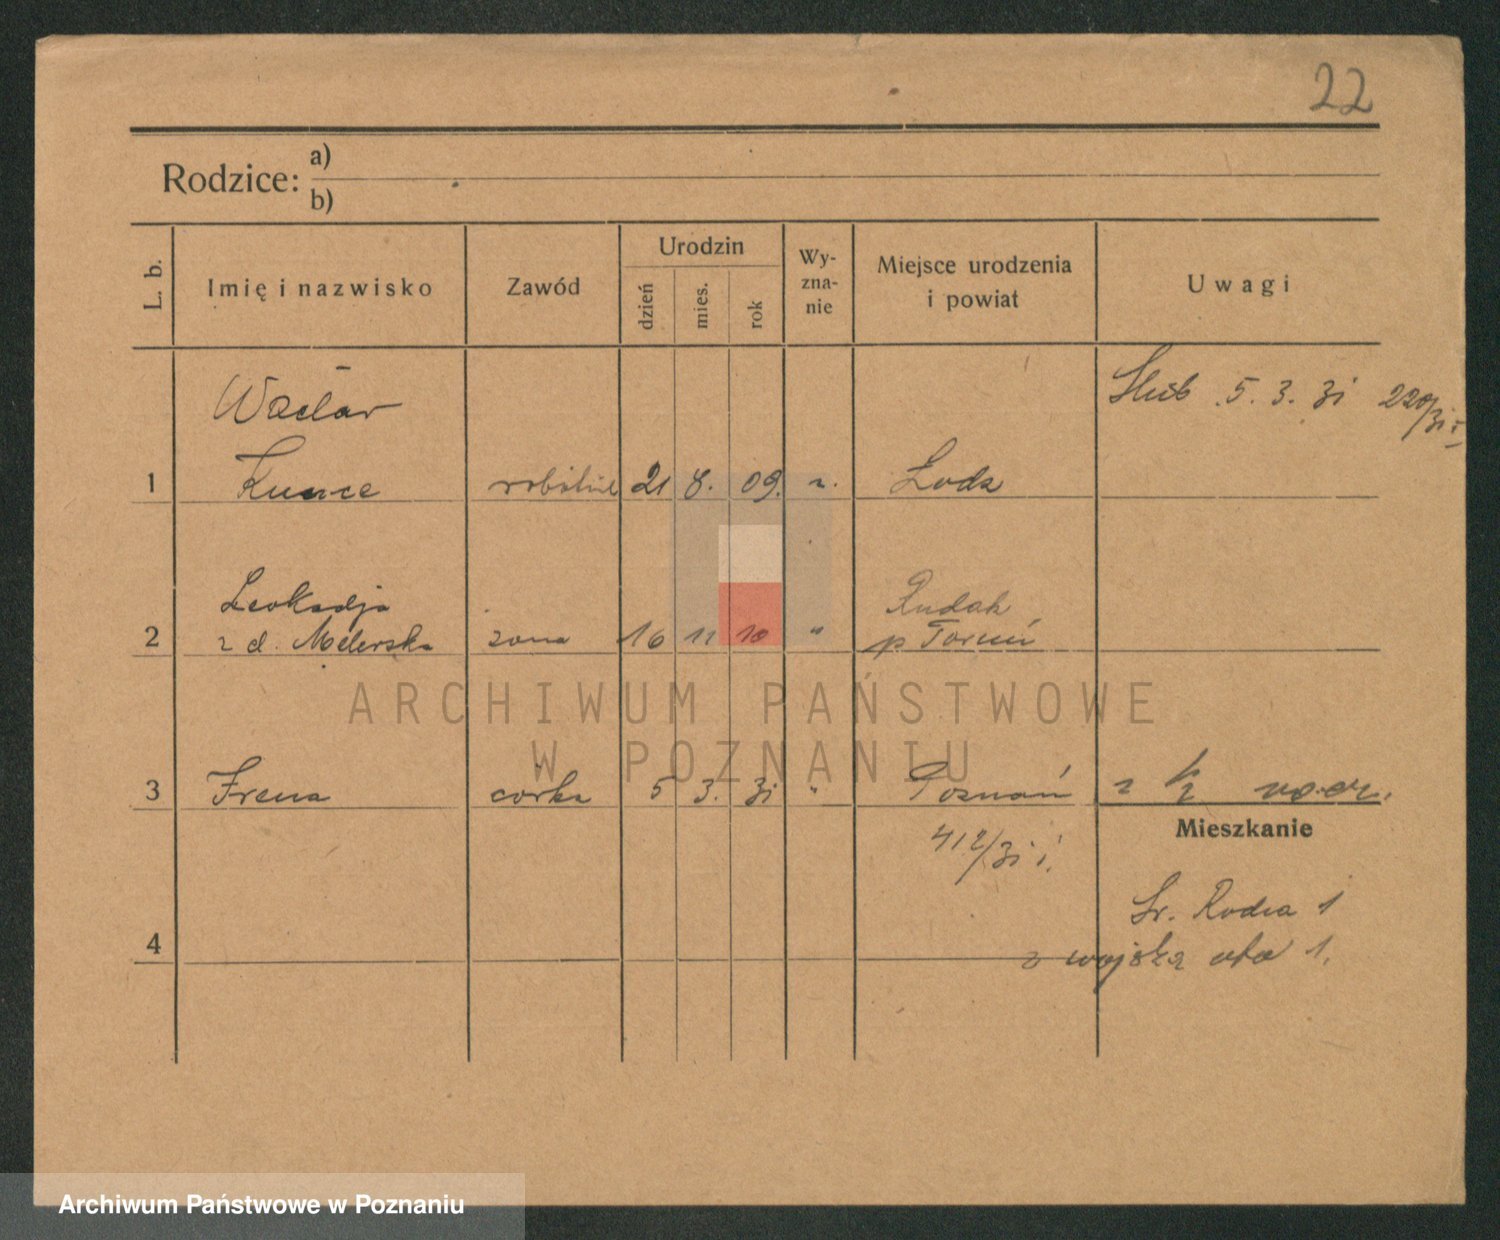 22
Rodzice: a)
b)
L. b.
Imię i nazwisko
Zawód
Urodzin
dzień
mies.
rok
Wy-
zna-
nie
Miejsce urodzenia
i powiat
Uwagi
Ślub 5. 3. 31
Wacław
1 Kunce robotnik 21 8. 09. Łodz
Leokadja
2 z d. żona 16 11 10 "
Rudak
p Toruń
3 Irena córka 5 3. 31 " Poznań
412/31
Mieszkanie
4
1
z wojska 1.
ARCHIWUM PAŃSTWOWE
W POZNANIU
Archiwum Państwowe w Poznaniu